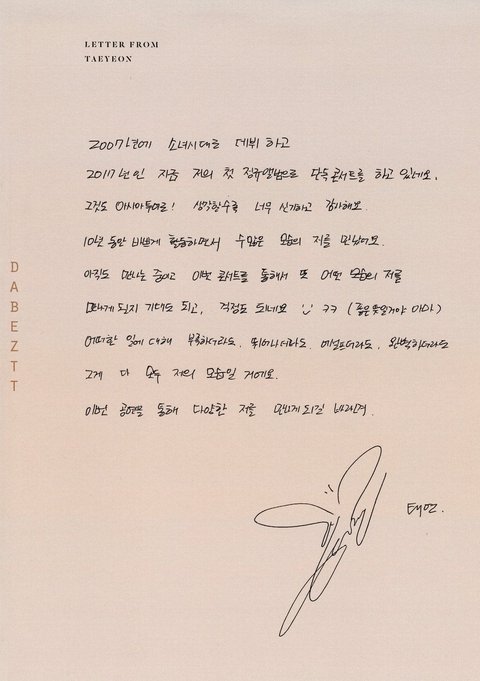 LETTER FROM
TAEYEON
2007년에 소녀시대로 데뷔 하고
2017년인 지금 저의 첫 정규앨범으로 단독콘서트를 하고 있네요.
그것도 아시아투어로! 생각할수록 너무 신기하고 감사해요.
10년 동안 바쁘게 활동하면서 수많은 모습의 저를 만났어요.
아직도 만나는 중이고 이번 콘서트를 통해서 또 어떤 모습의 저를
만나게 될지 기대도 되고, 걱정도 되네요 ㅋㅋ (좋은뜻일거야 아마)
어떠한 일에 대해 부족하더라도, 뛰어나더라도, 어설프더라도, 완벽하더라도
그게 다 모두 저의 모습일 거예요.
이번 공연을 통해 다양한 저를 만나게 되길 바라며.
태연.
DABEZTT